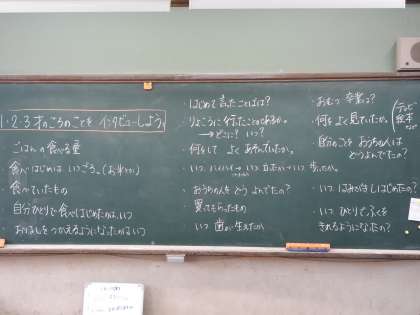 1・2・3才のころのことを インタビューしよう。
ごはんの食べる量
食べはじめは いつごろ。(お米とか)
・食べていたもの
自分ひとりで食べはじめたのは、いつ
おはしをつかえるようになったのはいつ
・はじめて言ったことばは?
・りょこうに行ったことはあるか。
→どこに? いつ?
・何をして よくあそんでいたか。
・いつ ハイハイ → いつ 立ったか → いつ 歩いたか。
・おうちの人を どう よんでたの?
・買ってもらったもの
・いつ 歯が生えたか
・おむつ 卒業は?
・何を よく 見ていたか。(テレビ 絵本)
・自分のことを おうちの人は
どうよんでたの?
・いつ はみがきしはじめたの?
・いつ ひとりでふくを
きれるようになったの?